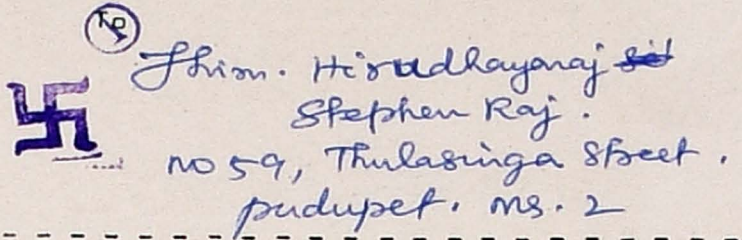 To
Thiru. Hirudhayaraj
Stephen Raj.
No 59, Thulasinga Street,
pudupet. ms. 2